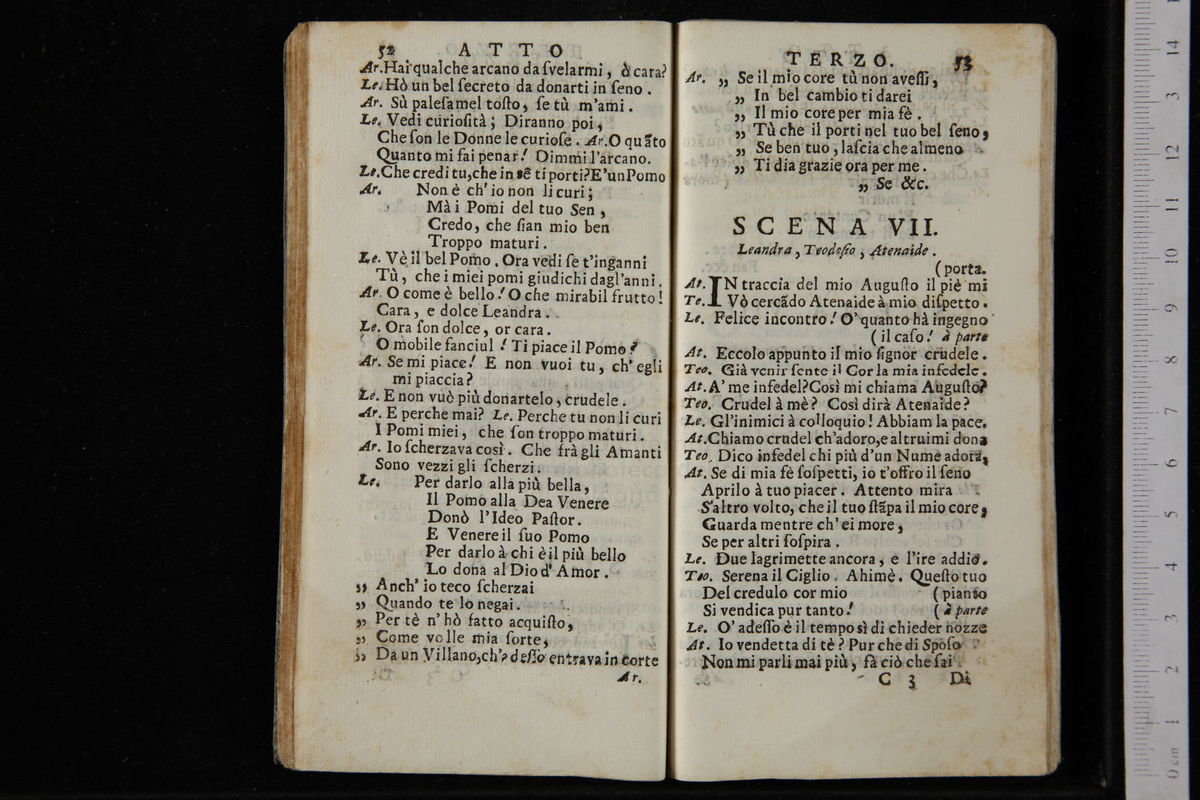 52 ATTO
Ar. Hai qualche arcano da ſvelarmi, ò cara?
Le. Hò un bel ſecreto da donarti in ſeno.
Ar. Sù paleſamel toſto, ſe tù m'ami.
Le. Vedi curioſità; Diranno poi,
Che ſon le Donne le curioſe. Ar. O quãto
Quanto mi fai penar! Dimmi l'arcano.
Le. Che credi tu, che in sẽ ti porti? E'un Pomo
Ar. Non è ch'io non li curi;
Mà i Pomi del tuo Sen,
Credo, che ſian mio ben
Troppo maturi.
Le. Vè il bel Pomo. Ora vedi ſe t'inganni
Tù, che i miei pomi giudichi dagl'anni.
Ar. O come è bello! O che mirabil frutto!
Cara, e dolce Leandra.
Le. Ora ſon dolce, or cara.
O mobile fanciul! Ti piace il Pomo?
Ar. Se mi piace! E non vuoi tu, ch'egli
mi piaccia?
Le. E non vuò più donartelo, crudele.
Ar. E perche mai? Le. Perche tu non li curi
I Pomi miei, che ſon troppo maturi.
Ar. Io ſcherzava così. Che frà gli Amanti
Sono vezzi gli ſcherzi.
Le. Per darlo alla più bella,
Il Pomo alla Dea Venere
Donò l'Ideo Paſtor.
E Venere il ſuo Pomo
Per darlo à chi è il più bello
Lo dona al Dio d'Amor.
„ Anch'io teco ſcherzai
„ Quando te lo negai.
„ Per tè n'hò fatto acquiſto,
„ Come volle mia ſorte,
„ Da un Villano, ch' adeſſo entrava in Corte
Ar.
TERZO. 53
Ar. „ Se il mio core tù non aveſſi,
„ In bel cambio ti darei
„ Il mio core per mia fè.
„ Tù che il porti nel tuo bel ſeno,
„ Se ben tuo, laſcia che almeno
„ Ti dia grazie ora per me.
„ Se &c.
SCENA VII.
Leandra, Teodoſio, Atenaide.
(porta.
At. IN traccia del mio Auguſto il piè mi
Te. Vò cercãdo Atenaide à mio diſpetto.
Le. Felice incontro! O'quanto hà ingegno
(il caſo! à parte
At. Eccolo appunto il mio ſignor crudele.
Teo. Già venir ſente il Cor la mia infedele.
At. A' me infedel? Così mi chiama Auguſto?
Teo. Crudel à mè? Così dirà Atenaide?
Le. Gl'inimici à colloquio! Abbiam la pace.
At. Chiamo crudel ch'adoro, e altrui mi dona
Teo. Dico infedel chi più d'un Nume adora,
At. Se di mia fè ſoſpetti, io t'offro il ſeno
Aprilo à tuo piacer. Attento mira
S'altro volto, che il tuo ſtãpa il mio core,
Guarda mentre ch'ei more,
Se per altri ſoſpira.
Le. Due lagrimette ancora, e l'ire addio.
Teo. Serena il Ciglio. Ahimè. Queſto tuo
Del credulo cor mio (pianto
Si vendica pur tanto! (à parte
Le. O' adeſſo è il tempo sì di chieder nozze
At. Io vendetta di tè? Pur che di Spoſo
Non mi parli mai più, fà ciò che ſai
C 3 Di